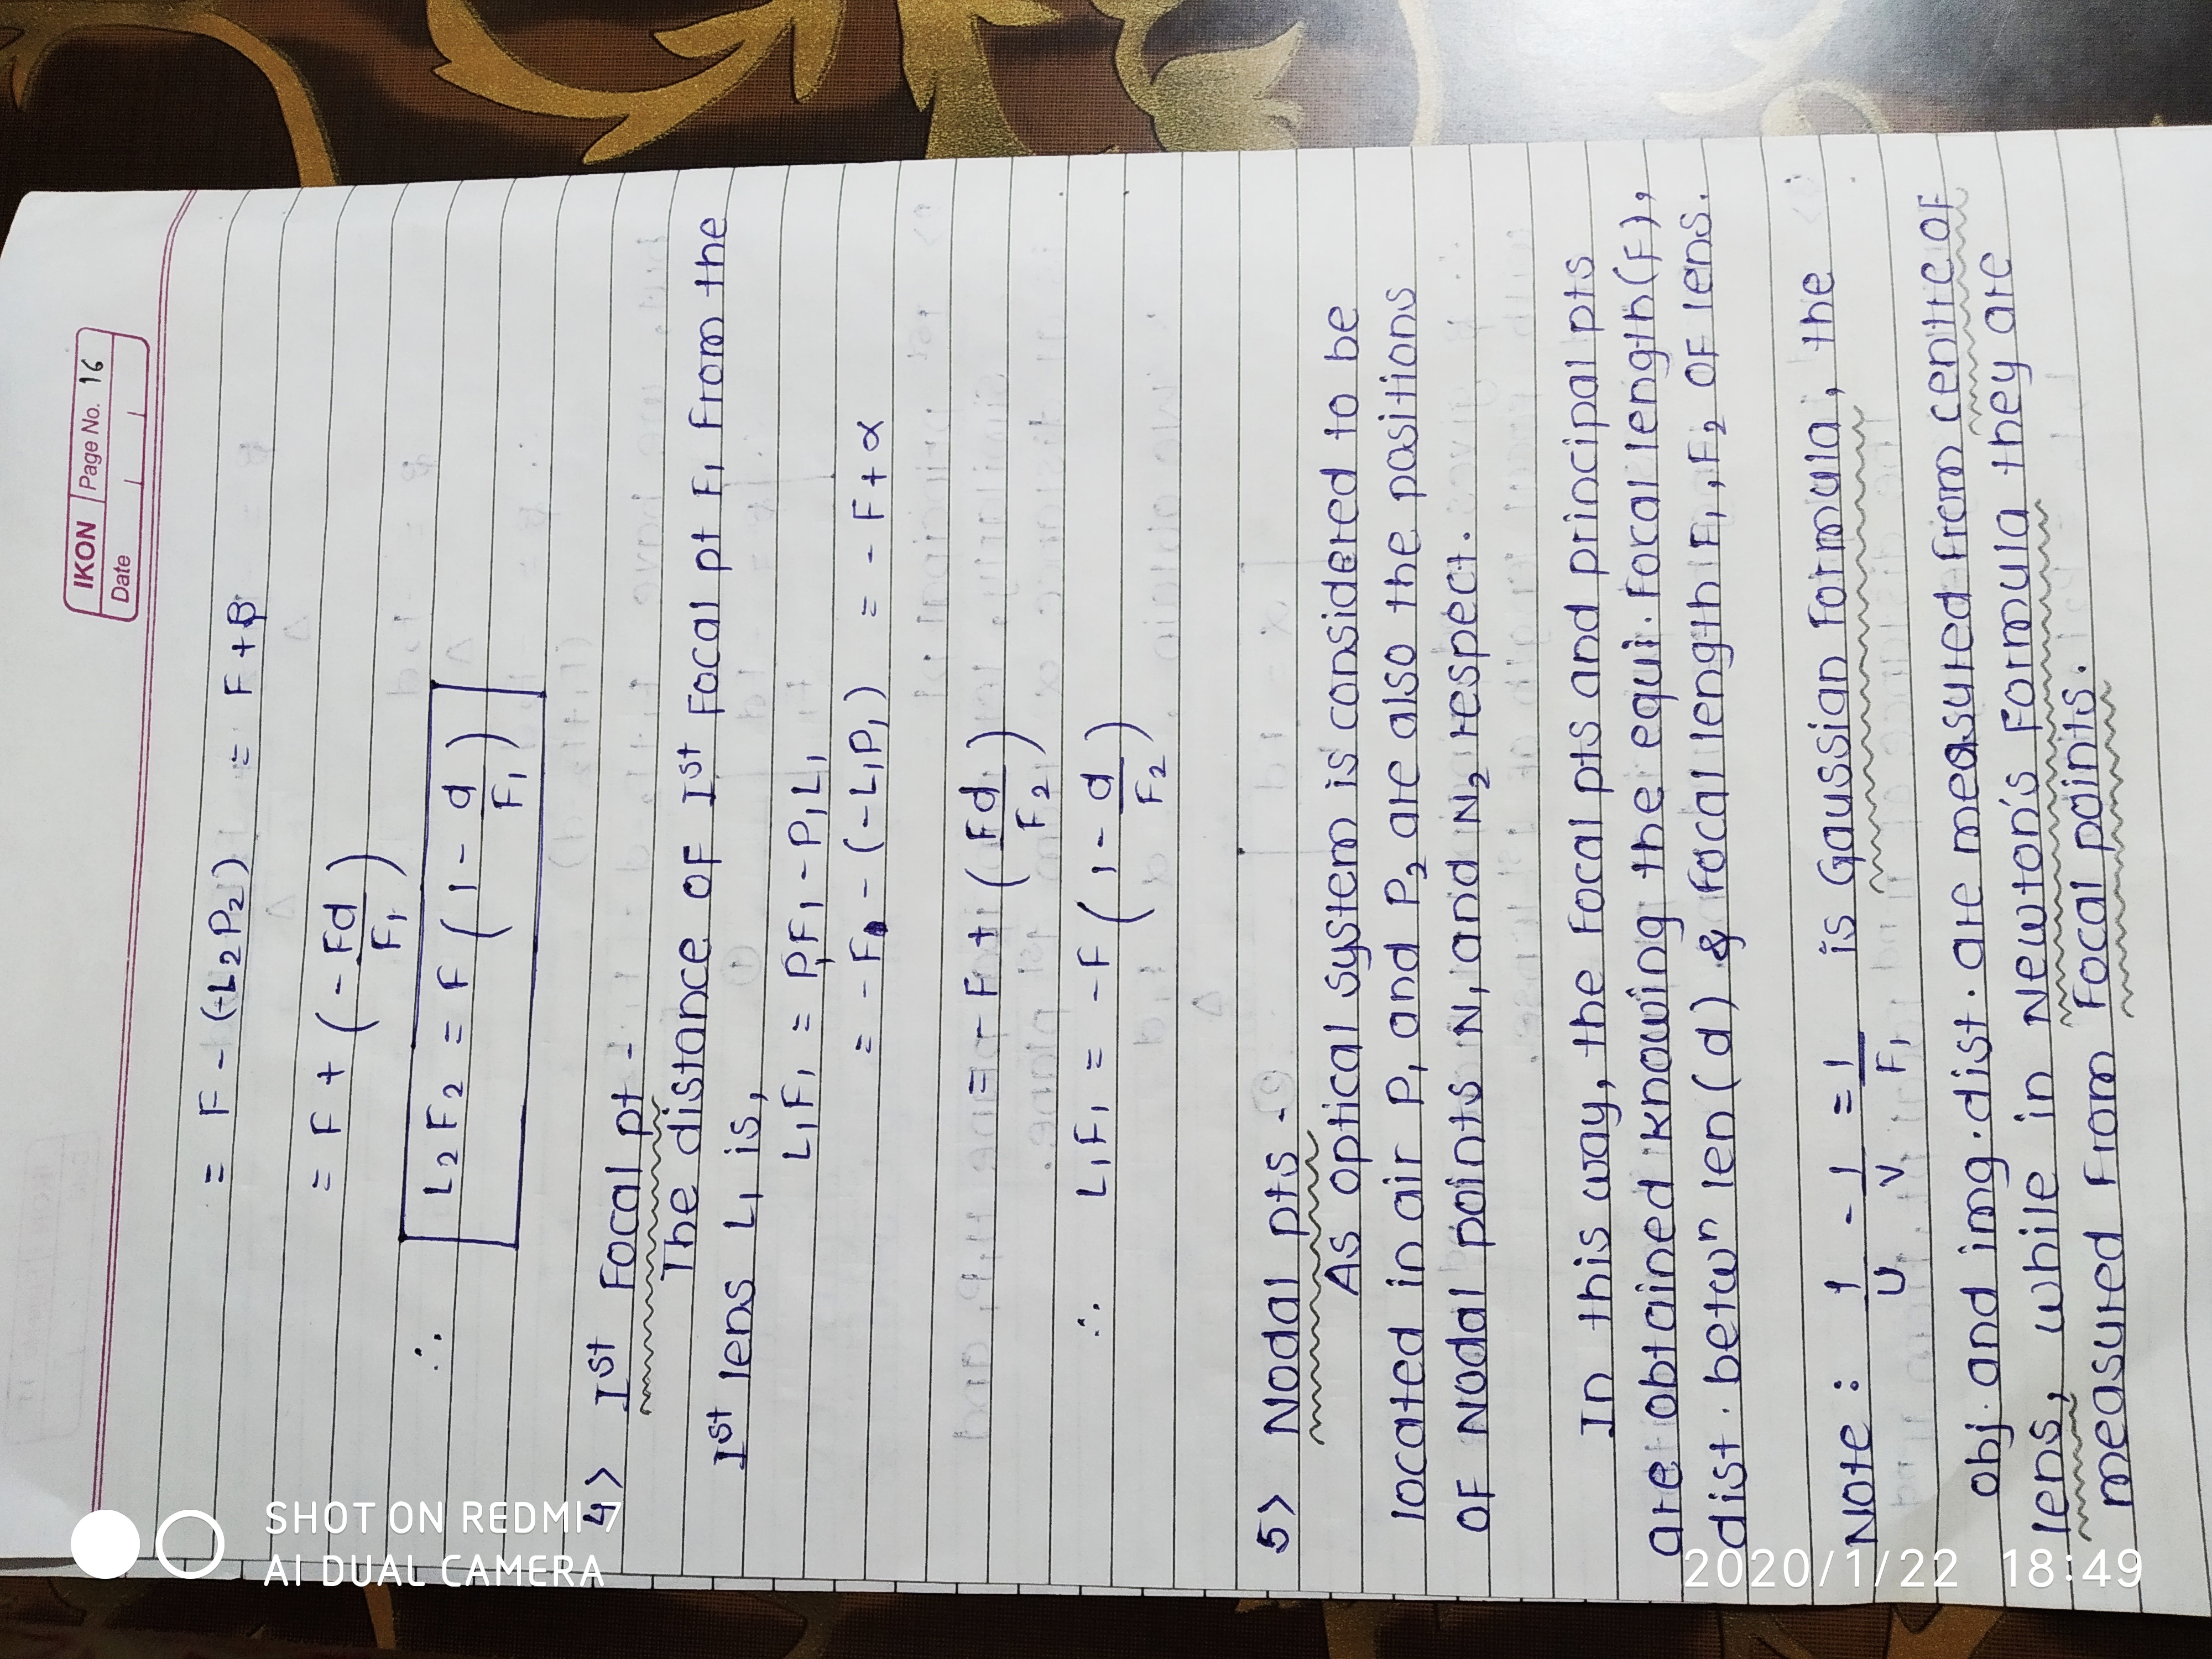 IKON Page No. 16
Date
= F - (-L₂P₂) = F + β
= F + (-Fd/F₁)
∴ L₂F₂ = F (1 - d/F₁)
4> Ist Focal pt -
The distance of Ist Focal pt F₁ from the
Ist lens L₁ is,
L₁F₁ = P₁F₁ - P₁L₁
= -F - (-L₁P₁) = -F + α
= -F + (Fd/F₂)
∴ L₁F₁ = -F (1 - d/F₂)
5> Nodal pts -
As optical system is considered to be
located in air P₁ and P₂ are also the positions
of Nodal points N₁ and N₂ respect.
In this way, the Focal pts and principal pts
are obtained knowing the equi. focal length(F),
dist. betwⁿ len (d) & focal length F₁, F₂ of lens.
Note : 1/u - 1/v = 1/F₁ is Gaussian Formula, the
obj. and img. dist. are measured from centre of
lens, while in Newton's Formula they are
measured from Focal points.
SHOT ON REDMI 7
AI DUAL CAMERA
2020/1/22 18:49